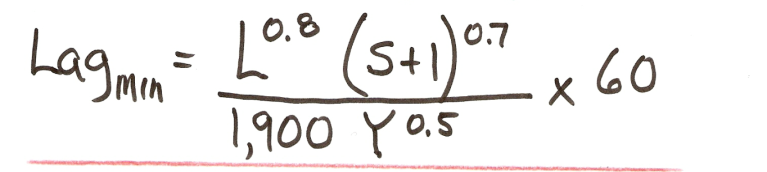 Lag_min = L^0.8 (S+1)^0.7 / 1,900 Y^0.5 x 60